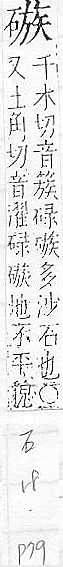 磩
千木切音簇碌磩多沙石也〇
又士角切音濯碌磩地不平貌
石 11
p79